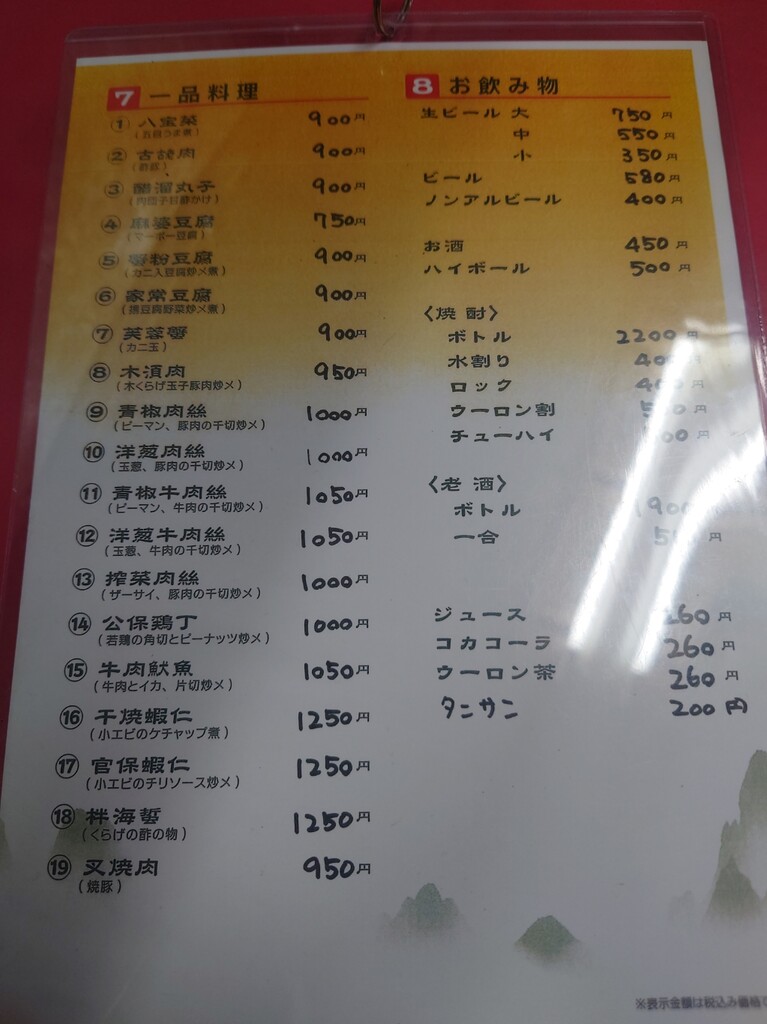 7 一品料理
① 八宝菜 900円
(五目うま煮)
② 古㗎肉 900円
(酢豚)
③ 醋溜丸子 900円
(肉団子甘酢かけ)
④ 麻婆豆腐 750円
(マーボー豆腐)
⑤ 蟹粉豆腐 900円
(カニ入豆腐炒〆煮)
⑥ 家常豆腐 900円
(揚豆腐野菜炒〆煮)
⑦ 芙蓉蟹 900円
(カニ玉)
⑧ 木須肉 950円
(木くらげ玉子豚肉炒〆)
⑨ 青椒肉絲 1000円
(ピーマン、豚肉の千切炒〆)
⑩ 洋葱肉絲 1000円
(玉葱、豚肉の千切炒〆)
⑪ 青椒牛肉絲 1050円
(ピーマン、牛肉の千切炒〆)
⑫ 洋葱牛肉絲 1050円
(玉葱、牛肉の千切炒〆)
⑬ 搾菜肉絲 1000円
(ザーサイ、豚肉の千切炒〆)
⑭ 公保鶏丁 1000円
(若鶏の角切とピーナッツ炒〆)
⑮ 牛肉魷魚 1050円
(牛肉とイカ、片切炒〆)
⑯ 干焼蝦仁 1250円
(小エビのケチャップ煮)
⑰ 官保蝦仁 1250円
(小エビのチリソース炒〆)
⑱ 拌海蜇 1250円
(くらげの酢の物)
⑲ 叉焼肉 950円
(焼豚)
8 お飲み物
生ビール 大 750円
中 550円
小 350円
ビール 580円
ノンアルビール 400円
お酒 450円
ハイボール 500円
〈焼酎〉
ボトル 2200円
水割り 円
ロック 円
ウーロン割 円
チューハイ 円
〈老酒〉
ボトル 1900
一合 円
ジュース 260円
コカコーラ 260円
ウーロン茶 260円
タンサン 200円
※表示金額は税込み価格で